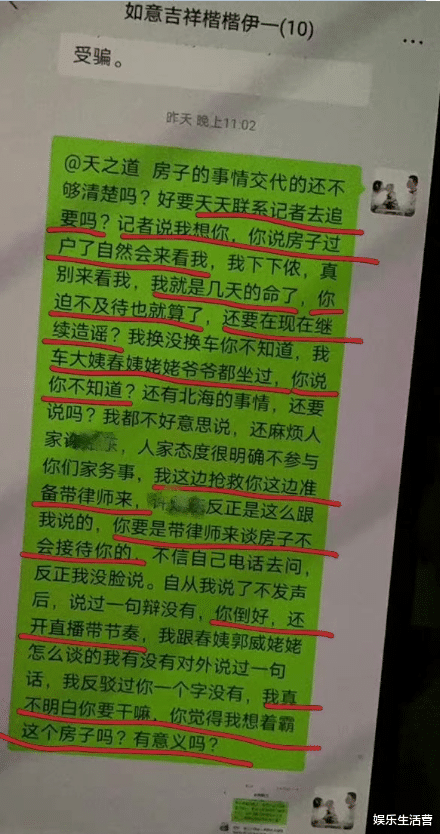 如意吉祥楷楷伊一(10)
受骗。
昨天 晚上11:02
@天之道 房子的事情交代的还不
够清楚吗？好要天天联系记者去追
要吗？记者说我想你，你说房子过
户了自然会来看我，我下下侬，真
别来看我，我就是几天的命了，你
迫不及待也就算了，还要在现在继
续造谣？我换没换车你不知道，我
车大姨春姨姥姥爷爷都坐过，你说
你不知道？还有北海的事情，还要
说吗？我都不好意思说，还麻烦人
家，人家态度很明确不参与
你们家务事，我这边抢救你这边准
备带律师来，反正是这么跟
我说的，你要是带律师来谈房子不
会接待你的。不信自己电话去问，
反正我没脸说。自从我说了不发声
后，说过一句辩没有，你倒好，还
开直播带节奏，我跟春姨郭威姥姥
怎么谈的我有没有对外说过一句
话，我反驳过你一个字没有，我真
不明白你要干嘛，你觉得我想着霸
这个房子吗？有意义吗？
娱乐生活营